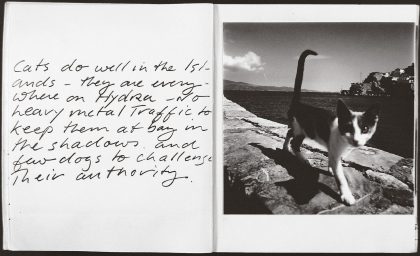 Cats do well in the Isl-
ands - they are every
where on Hydra - No
heavy metal Traffic to
keep them at bay in
the shadows and
few dogs to challenge
Their authority.